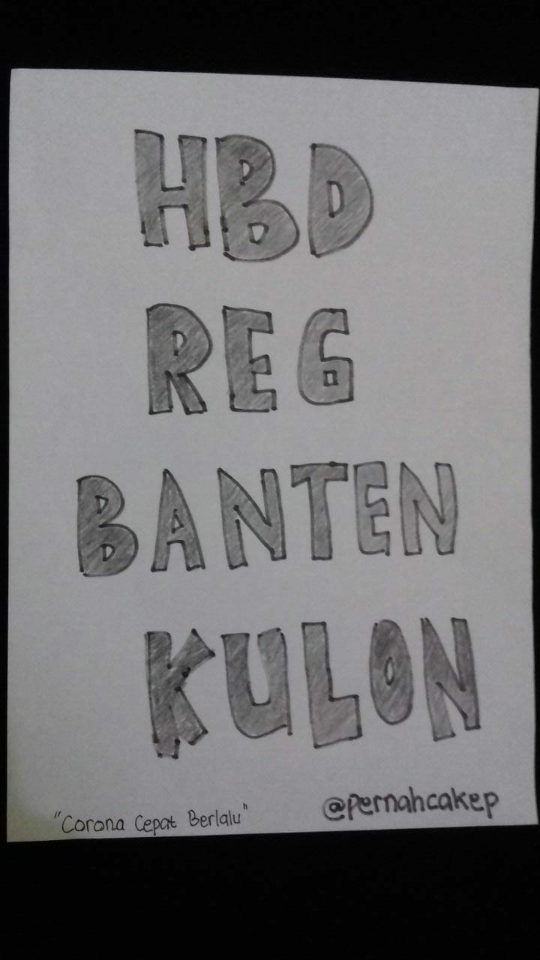 HBD
REG
BANTEN
KULON
"Corona Cepat Berlalu"
@pernahcakep